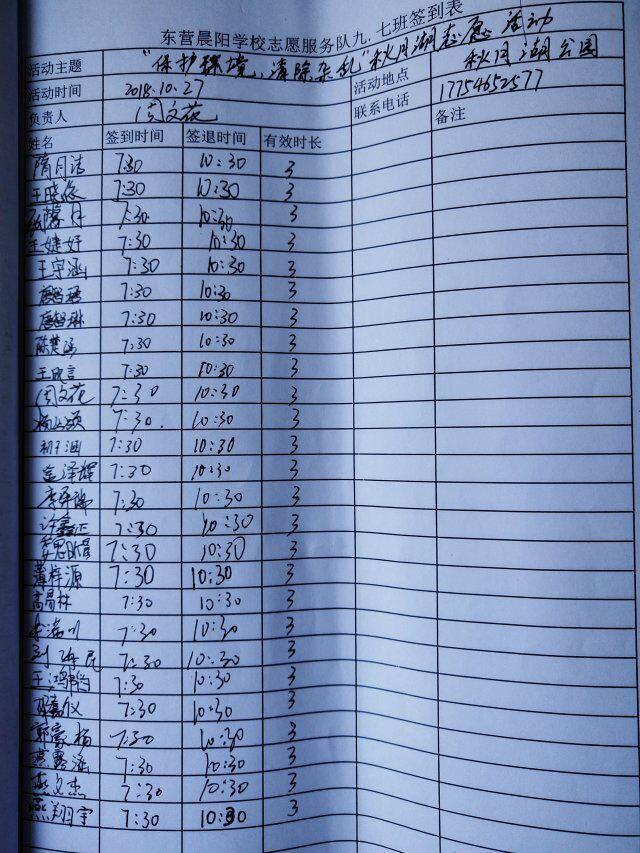 东营晨阳学校志愿服务队九.七班签到表
活动主题 "保护环境,清除杂乱"秋月湖志愿活动
活动时间 2018.10.27 活动地点 秋月湖公园
负责人 周文花 联系电话 17754652577
姓名 签到时间 签退时间 有效时长 备注
隋月洁 7:30 10:30 3
王晓悠 7:30 10:30 3
7:30 10:30 3
王婕妤 7:30 10:30 3
王宇涵 7:30 10:30 3
7:30 10:30 3
7:30 10:30 3
陈楚涵 7:30 10:30 3
王欣言 7:30 10:30 3
周文花 7:30 10:30 3
7:30. 10:30 3
7:30 10:30 3
金泽辉 7:30 10:30 3
7:30 10:30 3
许鑫正 7:30 10:30 3
7:30 10:30 3
薄梓源 7:30 10:30 3
高昌林 7:30 10:30 3
7:30 10:30 3
7:30 10:30 3
王鸿韵 7:30 10:30 3
7:30 10:30 3
郭豪杨 7:30 10:30 3
7:30 10:30 3
燕文杰 7:30 10:30 3
燕翔宇 7:30 10:30 3